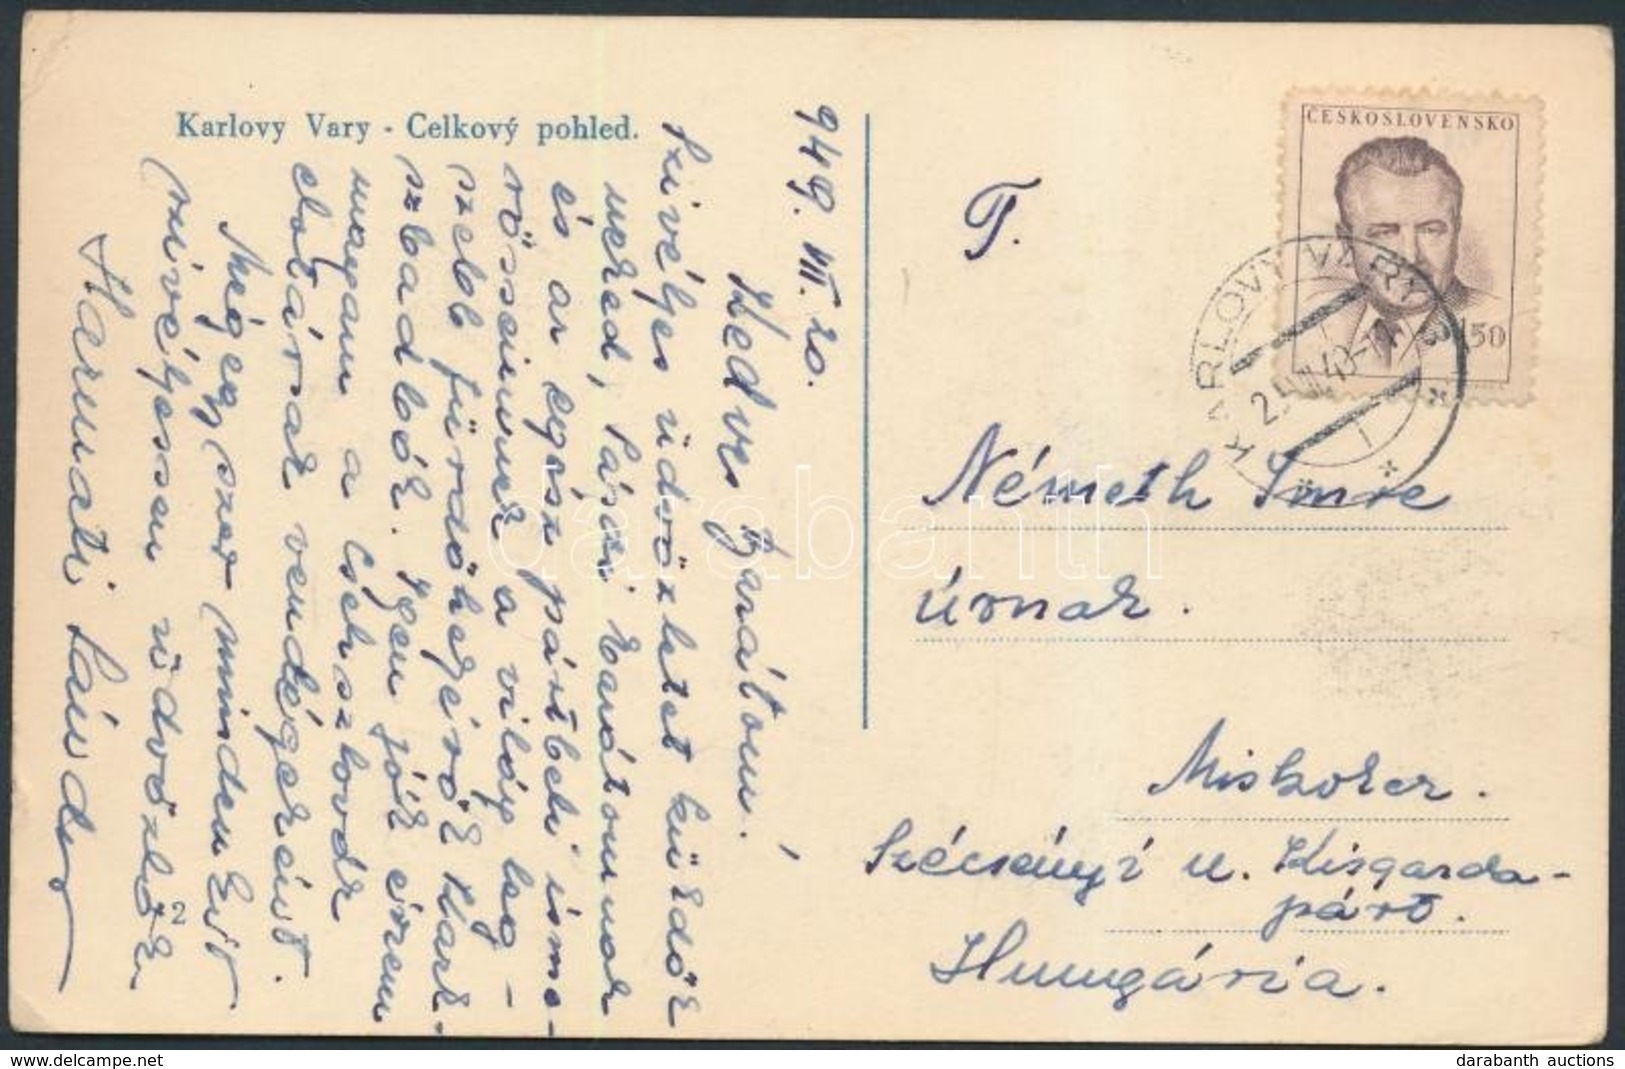 Karlovy Vary - Celkový pohled.
949. VII. 20.
Kedves Barátom!
Szivéljes üdvözletet küldök
neked, Pászi barátomnak
és az egész pártbeli isme-
rősseimnek a világ leg-
szebb fürdőhejéről Kark-
szbadból. Igen jól érzem
magam a Csehszlovák
elvtársak vendégeként.
Mégegyszer mindenkit
szivéljessen üdvözlök
Harmati Sándor
2
T.
ČESKOSLOVENSKO
1.50
KARLOVY VARY
Németh Imre
úrnak.
Miskolcz.
Szécsényi u. Kisgazda-
párt.
Hungária.
darabanth
darabanth auctions
www.delcampe.net